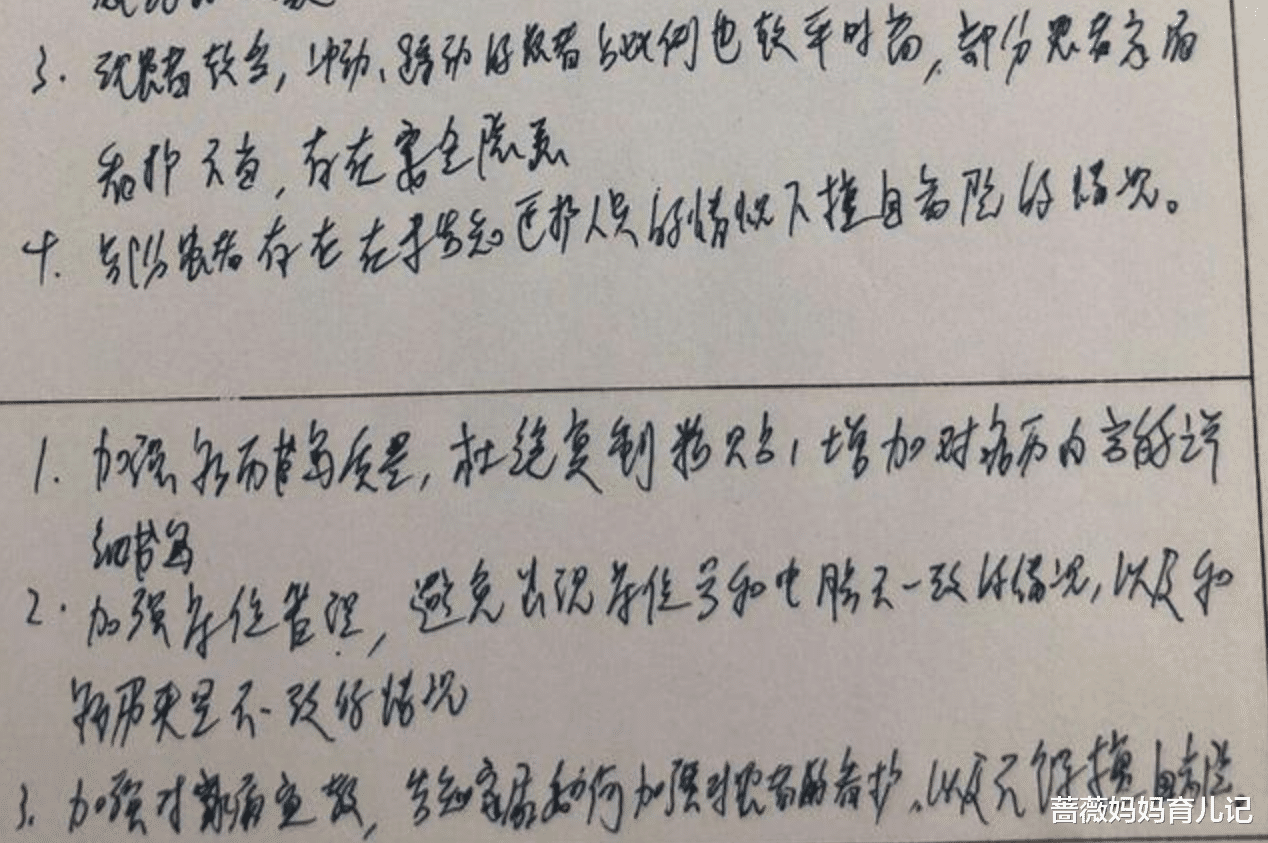 3. 现患者较多,冲动、躁动的患者占比例也较平时高,部分患者家属
看护不当,存在安全隐患
4. 部份患者存在在未告知医护人员的情况下擅自离院的情况。
1. 加强病历书写质量,杜绝复制粘贴,增加对病历内容的详
细书写
2. 加强床位管理,避免出现床位号和电脑不一致的情况,以及和
病历夹号不一致的情况
3. 加强对 病宣教,告知家属如何加强对患者的看护,以及 擅自离院
蔷薇妈妈育儿记